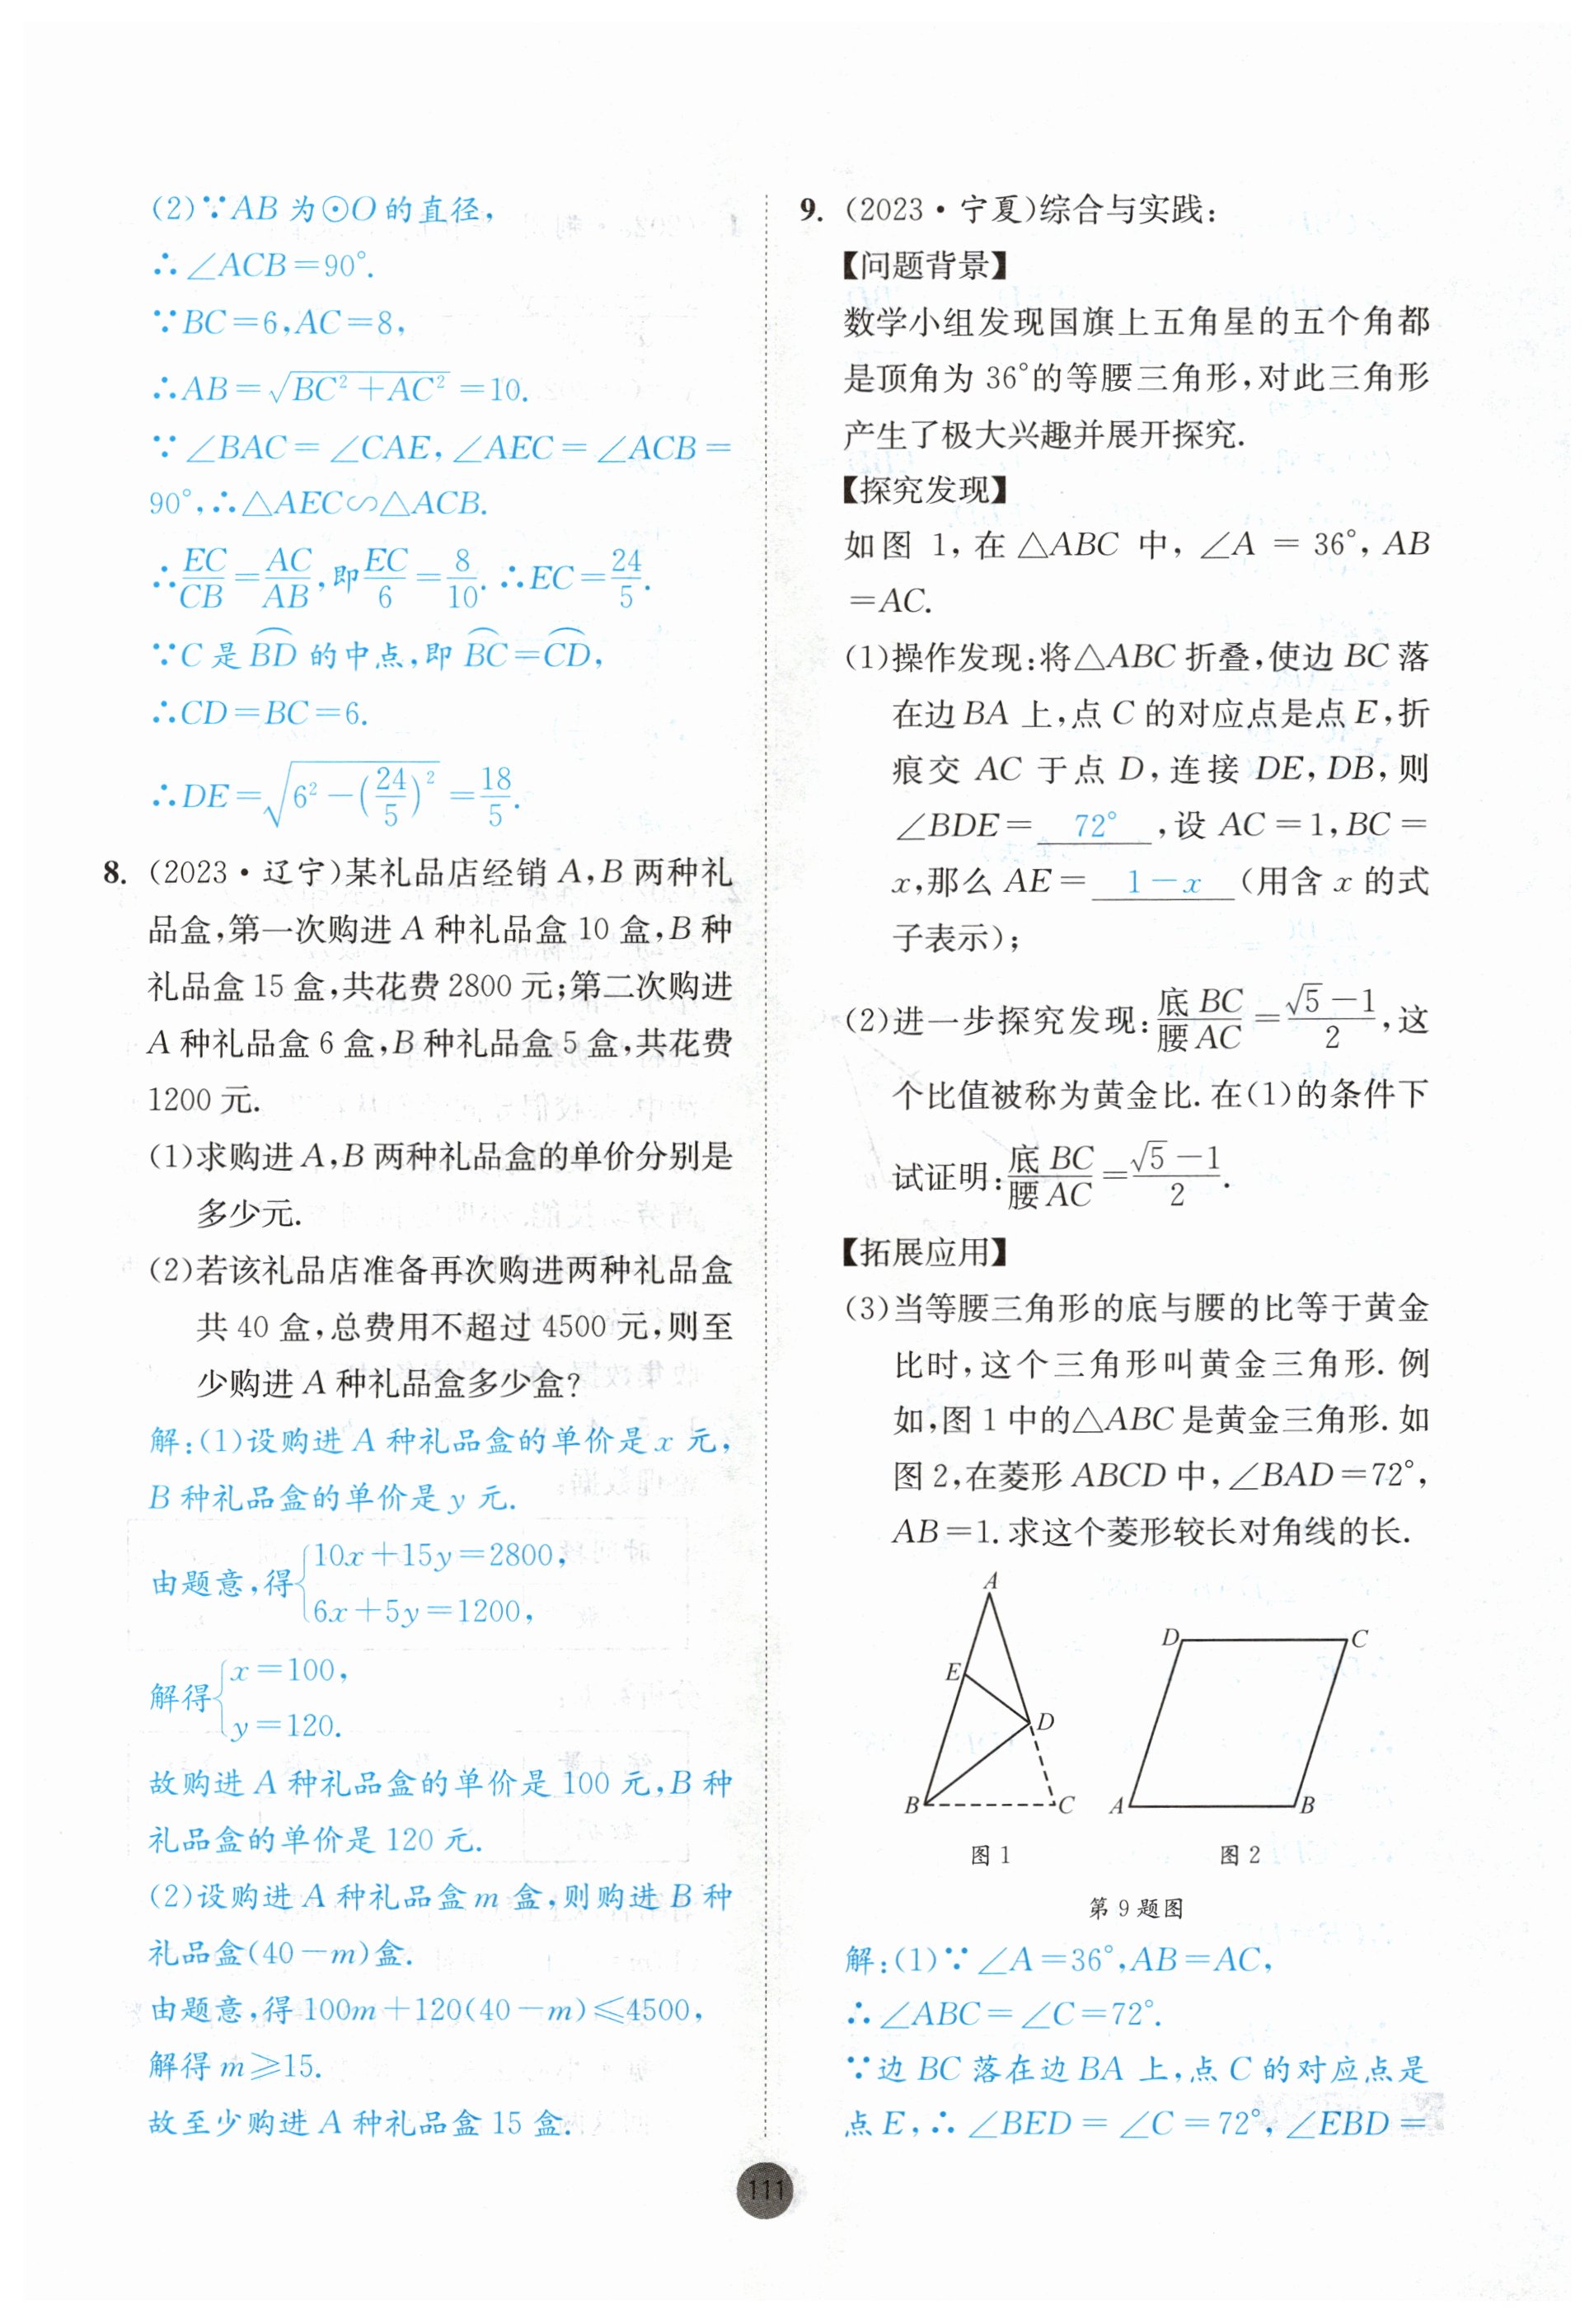 (2)∵AB为⊙O的直径,
∴∠ACB=90°.
∵BC=6,AC=8,
∴AB=√(BC²+AC²)=10.
∵∠BAC=∠CAE,∠AEC=∠ACB=
90°,∴△AEC∽△ACB.
∴EC/CB=AC/AB,即EC/6=8/10.∴EC=24/5.
∵C是⌒BD的中点,即⌒BC=⌒CD,
∴CD=BC=6.
∴DE=√(6²-(24/5)²)=18/5.
8.(2023·辽宁)某礼品店经销A,B两种礼
品盒,第一次购进A种礼品盒10盒,B种
礼品盒15盒,共花费2800元;第二次购进
A种礼品盒6盒,B种礼品盒5盒,共花费
1200元.
(1)求购进A,B两种礼品盒的单价分别是
多少元.
(2)若该礼品店准备再次购进两种礼品盒
共40盒,总费用不超过4500元,则至
少购进A种礼品盒多少盒?
解:(1)设购进A种礼品盒的单价是x元,
B种礼品盒的单价是y元.
由题意,得{10x+15y=2800,
6x+5y=1200,
解得{x=100,
y=120.
故购进A种礼品盒的单价是100元,B种
礼品盒的单价是120元.
(2)设购进A种礼品盒m盒,则购进B种
礼品盒(40-m)盒.
由题意,得100m+120(40-m)≤4500,
解得m≥15.
故至少购进A种礼品盒15盒.
9.(2023·宁夏)综合与实践:
【问题背景】
数学小组发现国旗上五角星的五个角都
是顶角为36°的等腰三角形,对此三角形
产生了极大兴趣并展开探究.
【探究发现】
如图1,在△ABC中,∠A=36°,AB
=AC.
(1)操作发现:将△ABC折叠,使边BC落
在边BA上,点C的对应点是点E,折
痕交AC于点D,连接DE,DB,则
∠BDE=72°,设AC=1,BC=
x,那么AE=1-x(用含x的式
子表示);
(2)进一步探究发现:底BC/腰AC=(√5-1)/2,这
个比值被称为黄金比.在(1)的条件下
试证明:底BC/腰AC=(√5-1)/2.
【拓展应用】
(3)当等腰三角形的底与腰的比等于黄金
比时,这个三角形叫黄金三角形.例
如,图1中的△ABC是黄金三角形.如
图2,在菱形ABCD中,∠BAD=72°,
AB=1.求这个菱形较长对角线的长.
A
E
D
B
C
图1
D
C
A
B
图2
第9题图
解:(1)∵∠A=36°,AB=AC,
∴∠ABC=∠C=72°.
∵边BC落在边BA上,点C的对应点是
点E,∴∠BED=∠C=72°,∠EBD=
111